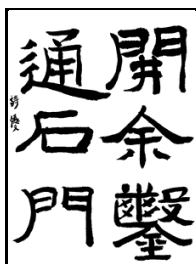 開余鑿
通石門